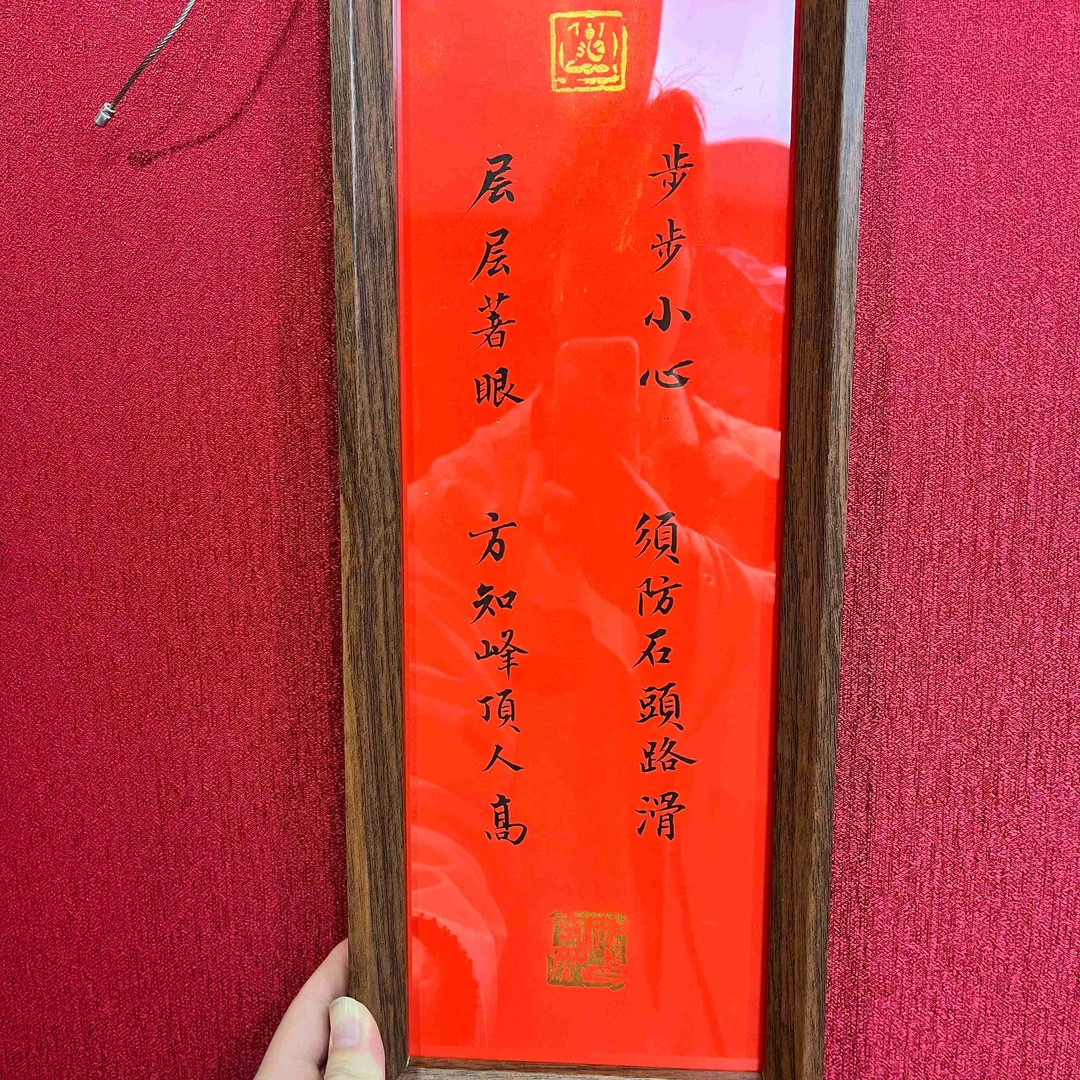 步步小心　須防石頭路滑
层层著眼　方知峰頂人高